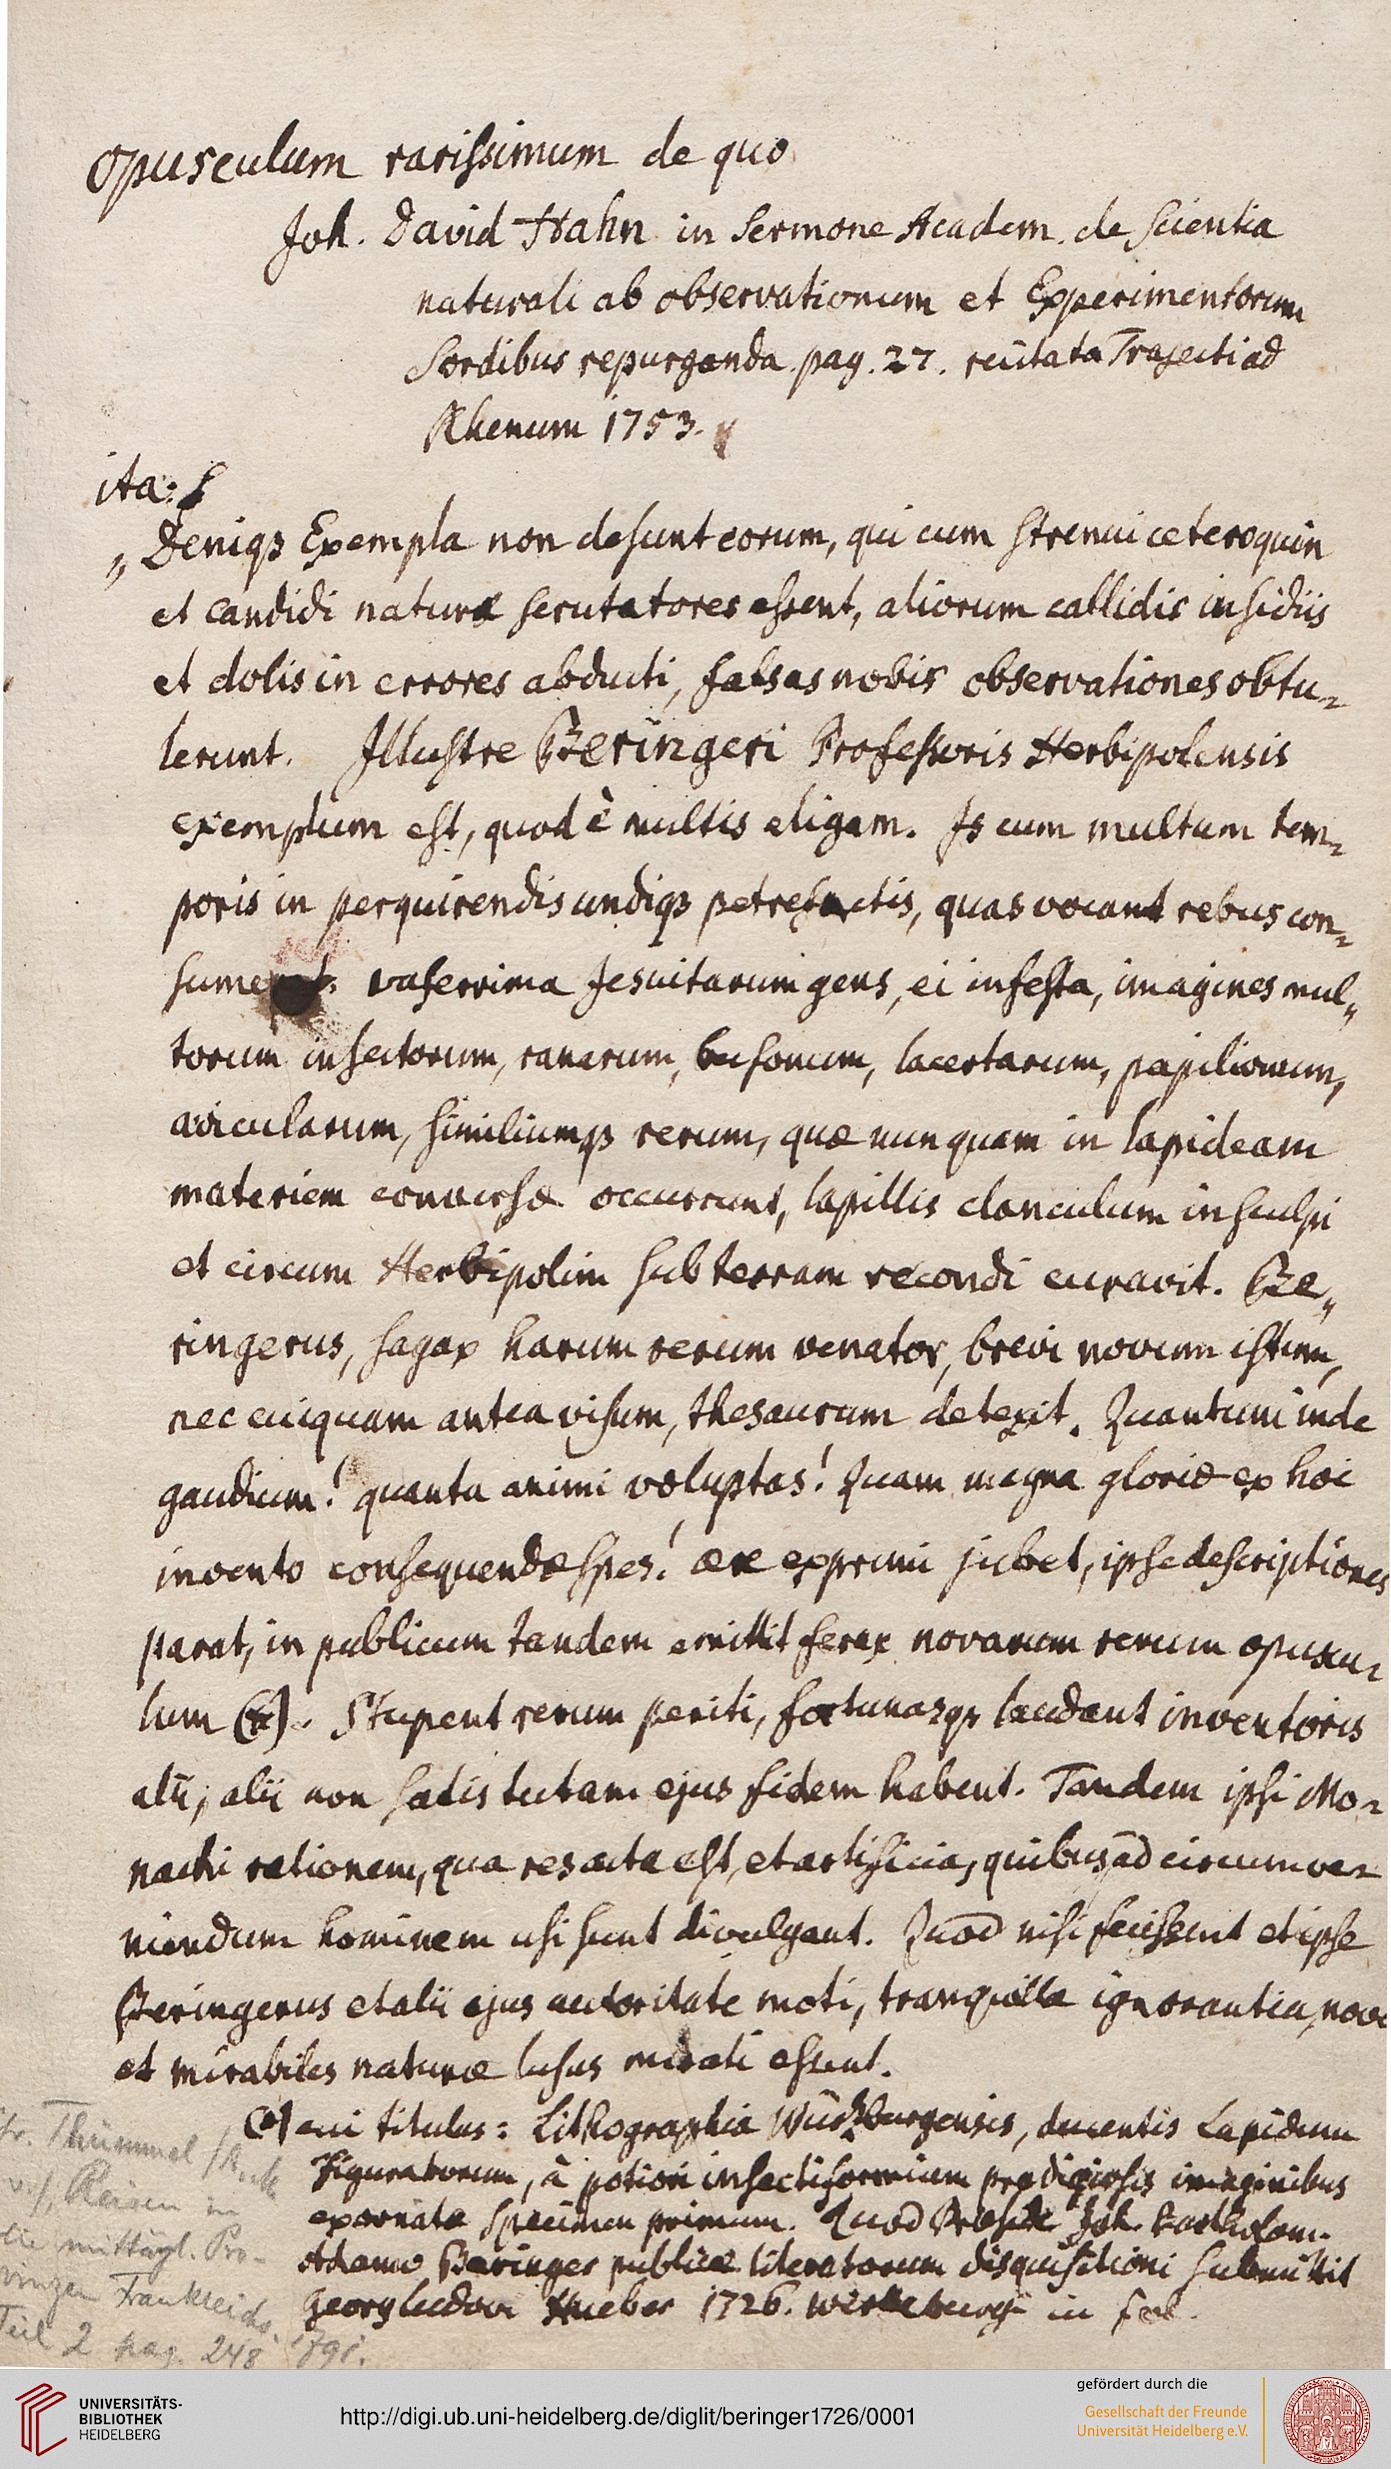 opusculum rarissimum de quo
Joh. David Hahn in Sermone Academ. de Scientia
naturali ab observationum et Experimentorum
Sordibus repurganda. pag. 27. recitata Trajecti ad
Rhenum 1753.
ita:
„Deniqȝ Exempla non desunt eorum, qui cum strenui ceteroquin
et candidi naturæ scrutatores essent, aliorum callidis insidiis
et dolis in errores abducti, falsas nobis observationes obtu-
lerunt. Illustre Beringeri Professoris Herbipolensis
exemplum est, quod è multis eligam. Is cum multum tem-
poris in perquirendis undiqȝ petrefactis, quas vocant rebus con-
sumeret: vaferrima Jesuitarum gens, ei infesta, imagines mul-
torum insectorum, ranarum, bufonum, lacertarum, papilionum,
avicularum, similiumqȝ rerum, quæ nunquam in lapideam
materiem conversæ occurrunt, lapillis clanculum insculpi
et circum Herbipolim sub terram recondi curavit. Be-
ringerus, sagax harum rerum venator, brevi novum istum,
nec cuiquam antea visum, thesaurum detexit. Quantum inde
gaudium! quanta animi voluptas! Quam magna gloriæ ex hoc
invento consequendæ spes! ære exprimi jubet, ipse descriptiones
parat, in publicum tandem emittit ferax novarum rerum opuscu-
lum (a). Stupent rerum periti, fortunasqȝ laudant inventoris
alii, alii non satis tutam ejus fidem habent. Tandem ipsi Mo-
nachi rationem, qua res acta est, et artificia, quibus ad circumve-
niendum hominem usi sunt divulgant. Quod nisi fecissent et ipse
Beringerus et alii ejus autoritate moti, tranquilla ignorantia, novos
et mirabiles naturæ lusus mirati essent.
(a) cui titulus: Lithographia Würzburgensis, ducentis Lapidum
Figuratorum, à potiori insectiformium prodigiosis imaginibus
exornatæ specimen primum. Quod Præside Joh. Bartholom.
Adamo Beringer publicæ literatorum disquisitioni submittit
Georg Ludov. Hueber 1726. Wirceburgi in fol.
Thümmel
Reisen in
die mittägl. Pro-
vinzen Frankreichs.
Teil 2 pag. 248 1791.
UNIVERSITÄTS-
BIBLIOTHEK
HEIDELBERG
http://digi.ub.uni-heidelberg.de/diglit/beringer1726/0001
gefördert durch die
Gesellschaft der Freunde
Universität Heidelberg e.V.